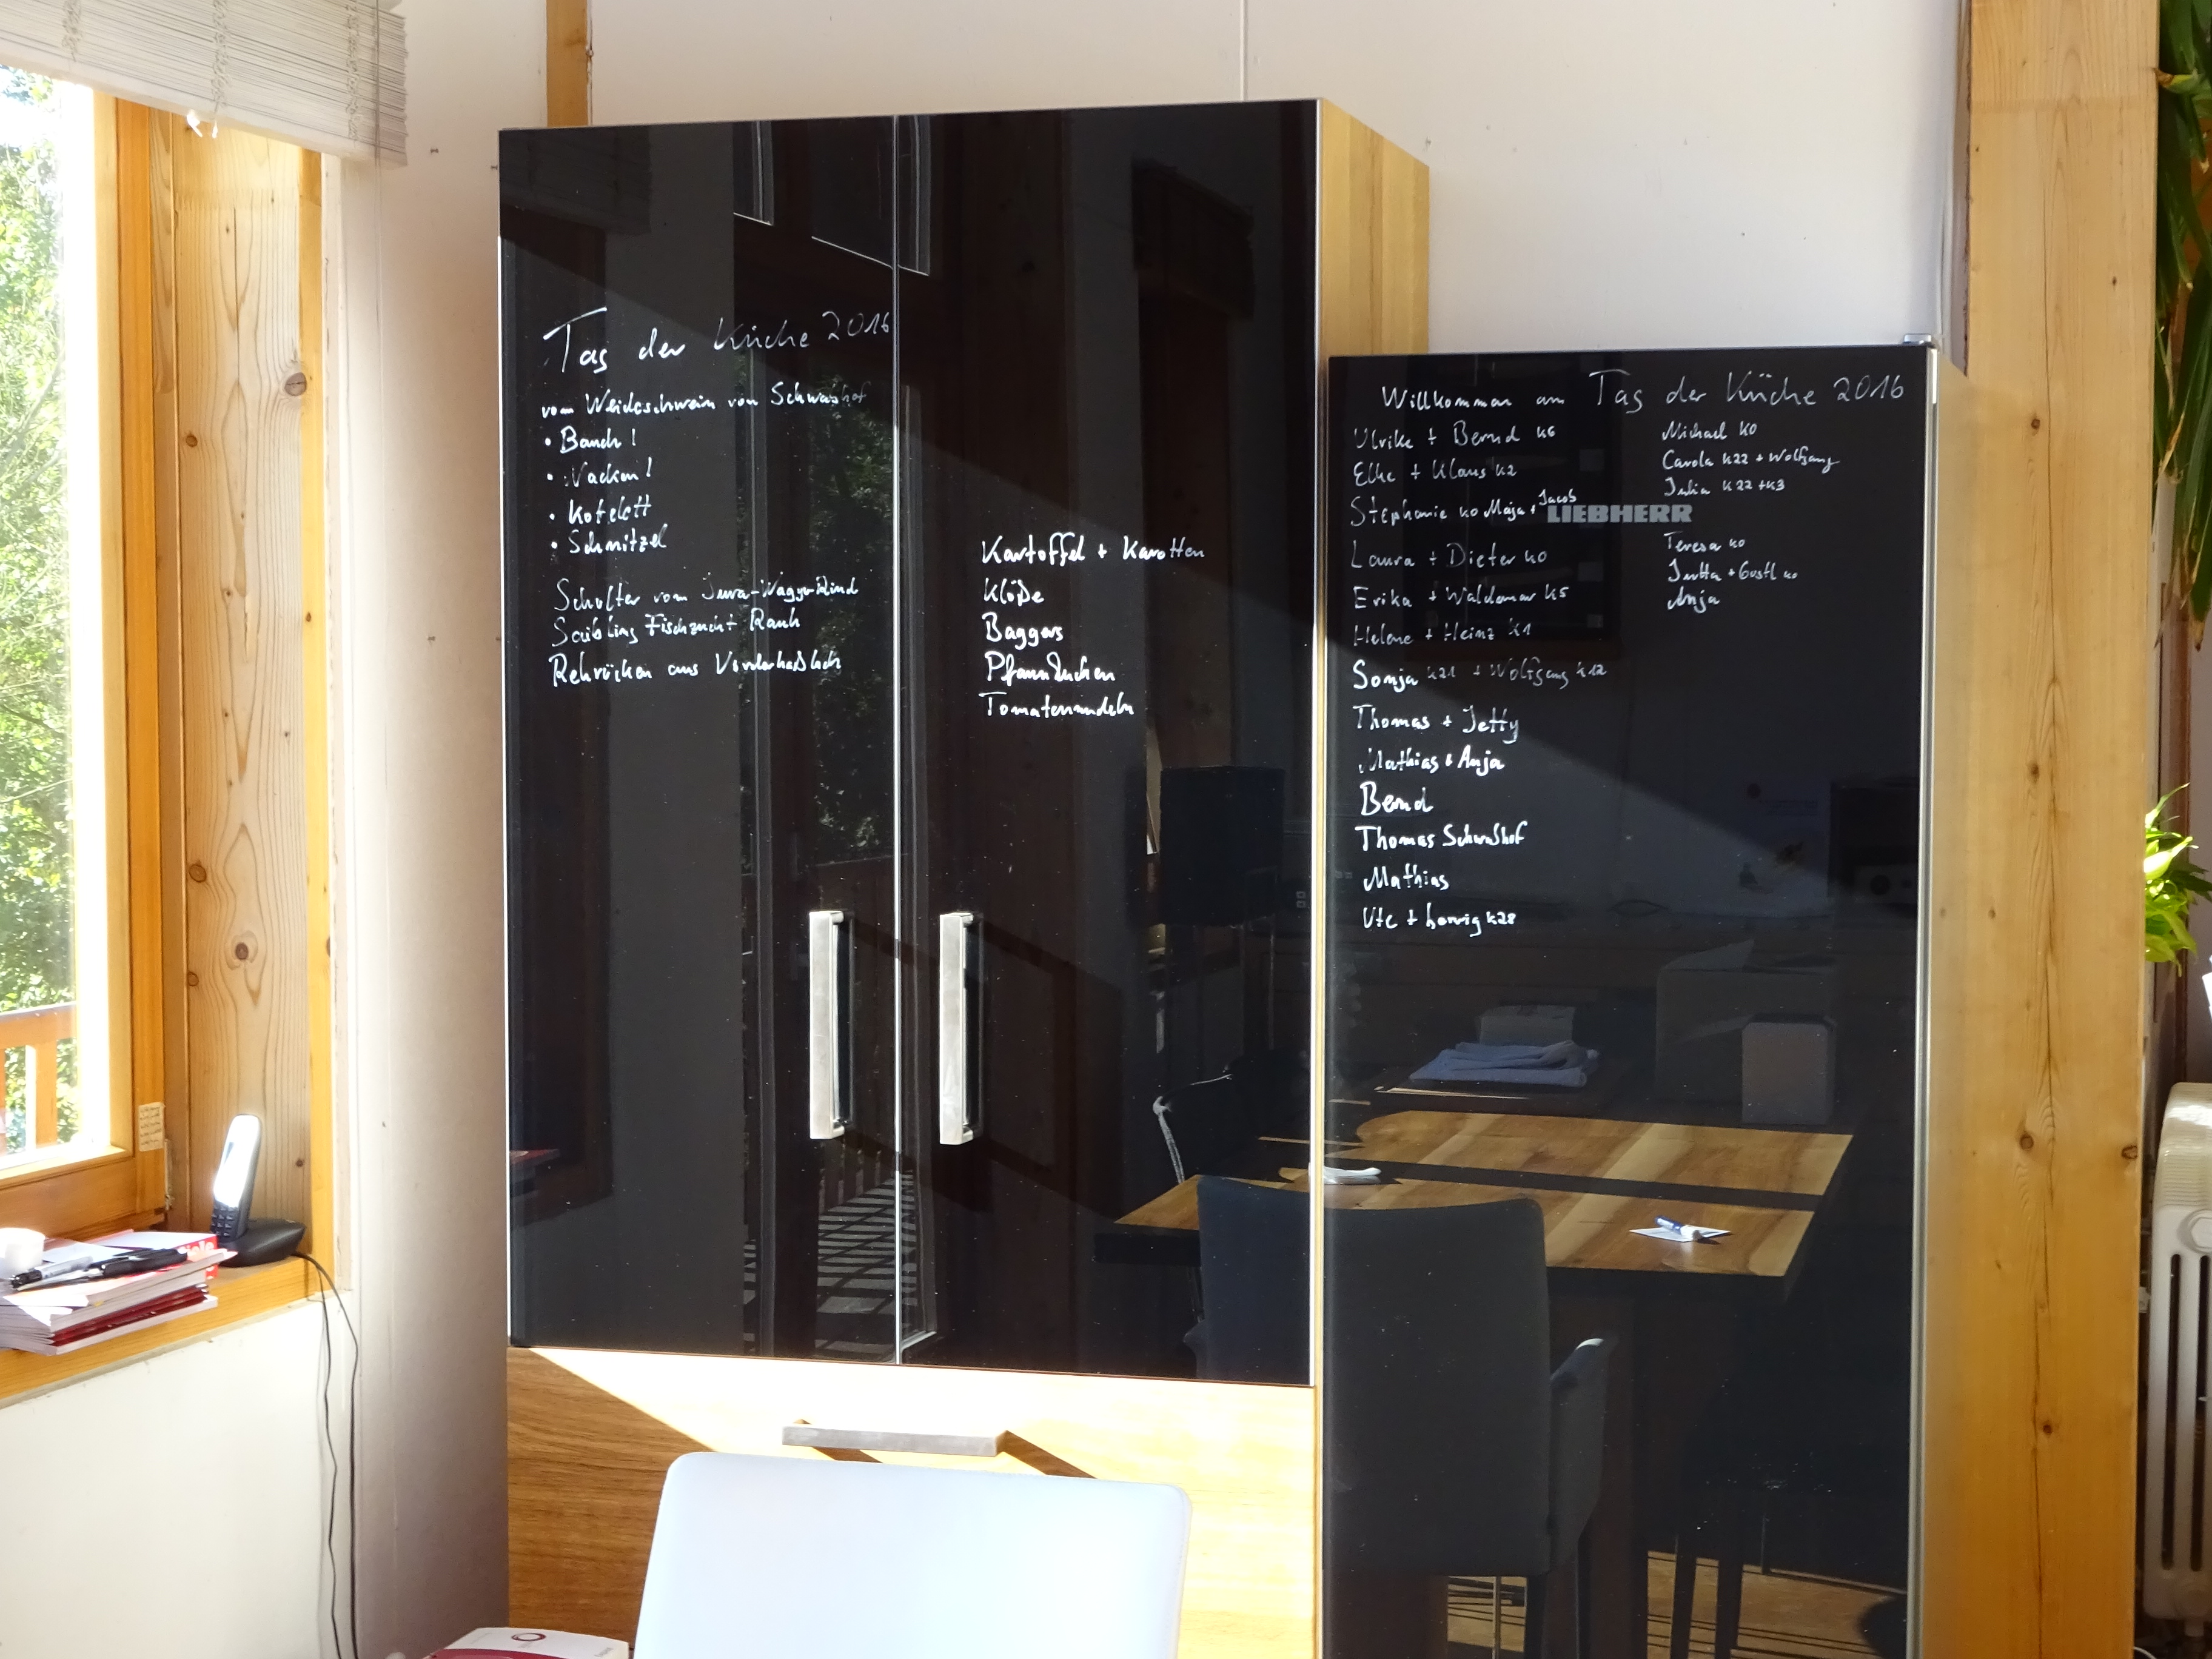 Tag der Küche 2016
vom Weideschwein von Schwabhof
• Bauch!
• Nacken!
• Kotelett
• Schnitzel
Schulter vom Jura-Wagyu-Rind
Saibling Fischzucht Rauh
Rehrücken aus
Kartoffel + Karotten
Klöße
Baggers
Pfannkuchen
Tomatennudeln
Willkommen am Tag der Küche 2016
Ulrike + Bernd K6
Elke + Klaus K2
Stephanie K0 Maja + Jacob
Laura + Dieter K0
Erika + Waldemar K5
Helene + Heinz K1
Sonja K21 + Wolfgang K12
Thomas + Jetty
Mathias + Anja
Bernd
Thomas
Mathias
Ute + K28
Michael K0
Carola K22 + Wolfgang
Julia K22 + K3
LIEBHERR
Teresa K0
Jutta + Gustl K0
Anja